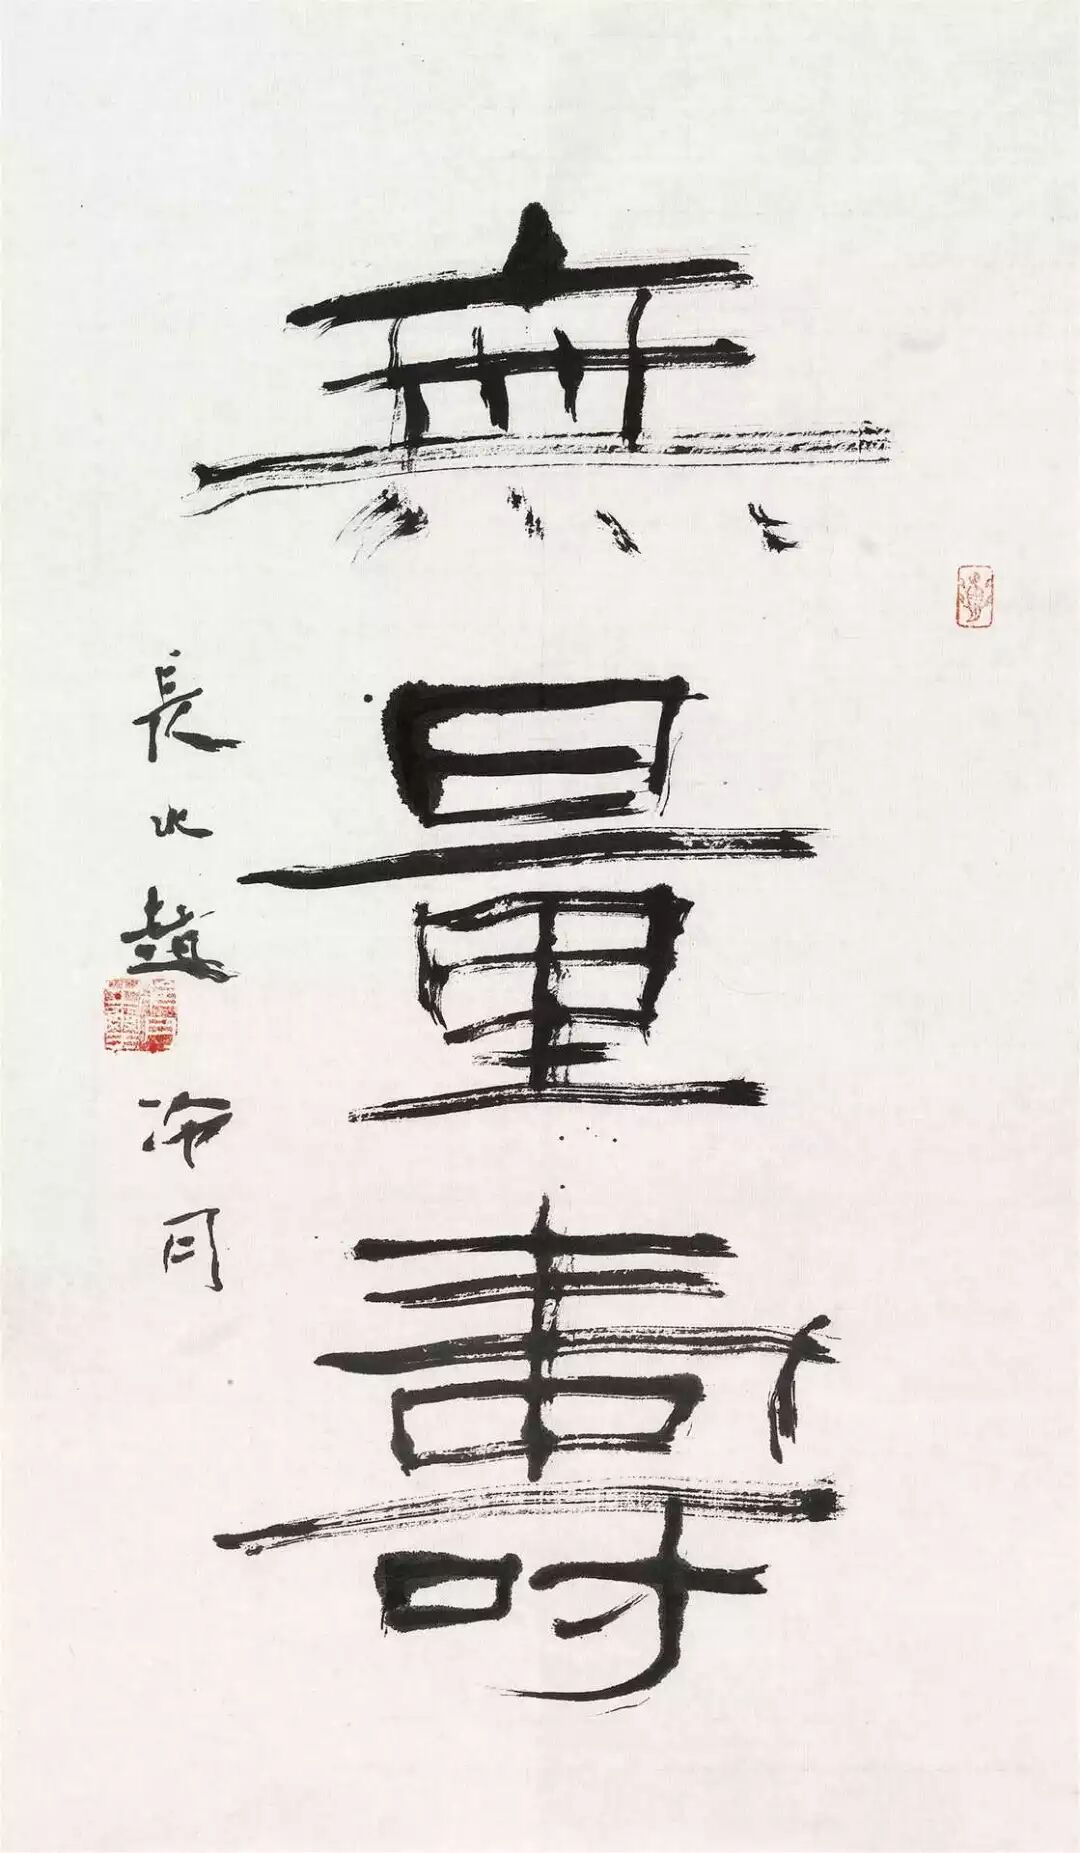 無量壽
長水趙冷月